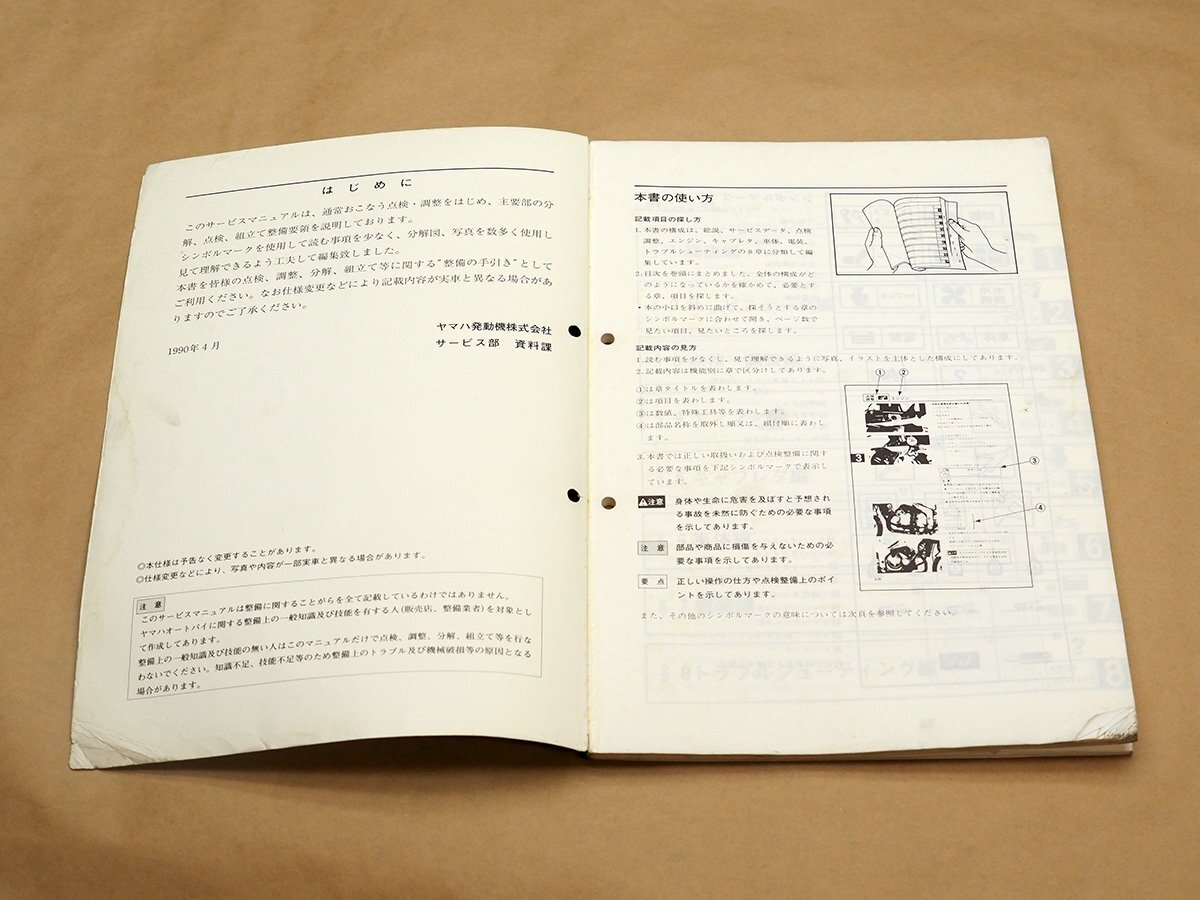 はじめに
このサービスマニュアルは、通常おこなう点検・調整をはじめ、主要部の分
解、点検、組立て整備要領を説明しております。
シンボルマークを使用して読む事項を少なく、分解図、写真を数多く使用し
見て理解できるよう工夫して編集致しました。
本書を皆様の点検、調整、分解、組立て等に関する“整備の手引き”として
ご利用ください。なお仕様変更などにより記載内容が実車と異なる場合があ
りますのでご了承ください。
1990年4月
ヤマハ発動機株式会社
サービス部 資料課
◎本仕様は予告なく変更することがあります。
◎仕様変更などにより、写真や内容が一部実車と異なる場合があります。
注意
このサービスマニュアルは整備に関することがらを全て記載しているわけではありません。
ヤマハオートバイに関する整備上の一般知識及び技能を有する人(販売店、整備業者)を対象とし
て作成してあります。
整備上の一般知識及び技能の無い人はこのマニュアルだけで点検、調整、分解、組立て等を行な
わないでください。知識不足、技能不足等のため整備上のトラブル及び機械破損等の原因となる
場合があります。
本書の使い方
記載項目の探し方
1.本書の構成は、総説、サービスデータ、点検
調整、エンジン、キャブレタ、車体、電装、
トラブルシューティングの8章に分類して編
集しています。
2.目次を巻頭にまとめました。全体の構成がど
のようになっているかを確かめて、必要とす
る章、項目を探します。
・本の小口を斜めに曲げて、探そうとする章の
シンボルマークに合わせて開き、ページ数で
見たい項目、見たいところを探します。
記載内容の見方
1.読む事項を少なくし、見て理解できるように写真、イラストを主体とした構成にしてあります。
2.記載内容は機能別に章で区分けしてあります。
①は章タイトルを表わします。
②は項目を表わします。
③は数値、特殊工具等を表わします。
④は部品名称を取外し順又は、組付順に表わし
ます。
3.本書では正しい取扱いおよび点検整備に関す
る必要な事項を下記シンボルマークで表示し
ています。
注意 身体や生命に危害を及ぼすと予想され
る事故を未然に防ぐための必要な事項
を示してあります。
注意 部品や商品に損傷を与えないための必
要な事項を示してあります。
要点 正しい操作の仕方や点検整備上のポイ
ントを示してあります。
また、その他のシンボルマークの意味については次頁を参照してください。
① ②
エンジン
3
③
④